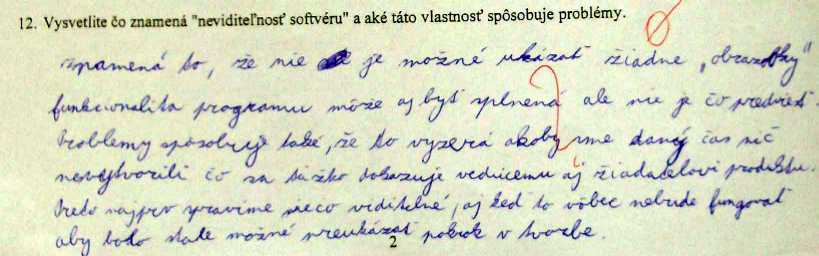 12. Vysvetlite čo znamená "neviditeľnosť softvéru" a aké táto vlastnosť spôsobuje problémy.
znamená to, že nie je možné ukázať žiadne „obrazovky"
funkcionalita programu môže aj byť splnená ale nie je čo predviesť.
Problémy spôsobuje také, že to vyzerá akoby sme daný čas nič
nevytvorili čo sa ťažko dokazuje vedúcemu aj žiadateľovi produktu.
Preto najprv spravíme niečo viditeľné, aj keď to vôbec nebude fungovať
aby bolo stále možné preukázať pokrok v tvorbe.
2